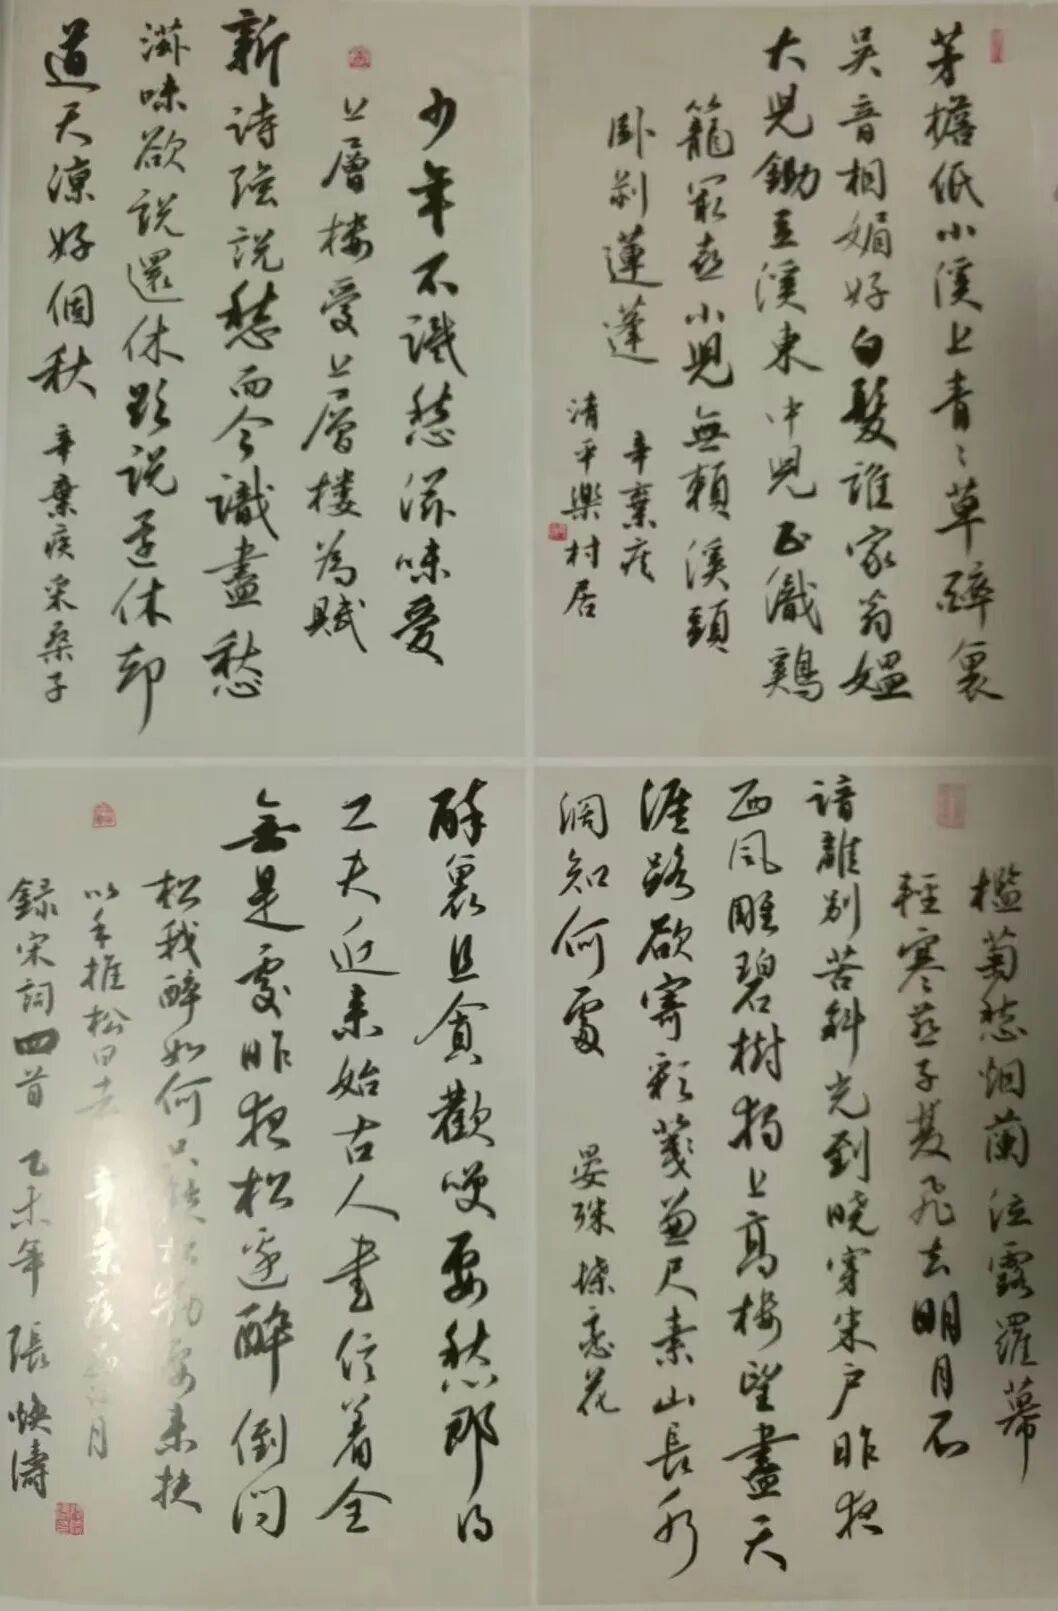 茅檐低小溪上青〻草醉裏
吳音相媚好白髮誰家翁媼
大兒鋤豆溪東中兒正織鷄
籠最喜小兒無賴溪頭
卧剥蓮蓬 辛棄疾
清平樂村居
少年不識愁滋味愛
上層楼愛上層楼為賦
新詩強說愁而今識盡愁
滋味欲說還休欲說還休却
道天涼好個秋 辛棄疾采桑子
檻菊愁烟蘭泣露羅幕
輕寒燕子雙飛去明月不
諳離别苦斜光到曉穿朱户昨夜
西風雕碧樹獨上高楼望盡天
涯路欲寄彩箋兼尺素山長水
闊知何處 晏殊蝶恋花
醉裏且貪歡笑要愁那得
工夫近来始古人書信着全
無是處昨夜松邊醉倒問
松我醉如何只疑松動要来扶
以手推松曰去 辛棄疾西江月
録宋詞四首 乙未年 張快濤